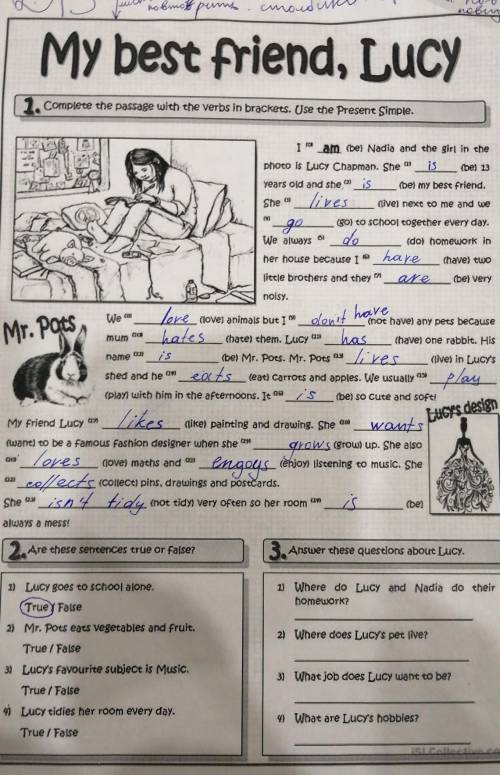 повторить. столбики
My best friend, Lucy
1. Complete the passage with the verbs in brackets. Use the Present Simple.
I (0) am (be) Nadia and the girl in the
photo is Lucy Chapman. She (1) is (be) 13
years old and she (2) is (be) my best friend.
She (3) lives (live) next to me and we
(4) go (go) to school together every day.
We always (5) do (do) homework in
her house because I (6) have (have) two
little brothers and they (7) are (be) very
noisy.
Mr. Pots
We (8) love (love) animals but I (9) don't have (not have) any pets because
mum (10) hates (hate) them. Lucy (11) has (have) one rabbit. His
name (12) is (be) Mr. Pots. Mr. Pots (13) lives (live) in Lucy's
shed and he (14) eats (eat) carrots and apples. We usually (15) play
(play) with him in the afternoons. It (16) is (be) so cute and soft!
Lucy's design
My friend Lucy (17) likes (like) painting and drawing. She (18) wants
(want) to be a famous fashion designer when she (19) grows (grow) up. She also
(20) loves (love) maths and (21) engoys (enjoy) listening to music. She
(22) collects (collect) pins, drawings and postcards.
She (23) isn't tidy (not tidy) very often so her room (24) is (be)
always a mess!
2. Are these sentences true or false?
1) Lucy goes to school alone.
True / False
2) Mr. Pots eats vegetables and fruit.
True / False
3) Lucy's favourite subject is Music.
True / False
4) Lucy tidies her room every day.
True / False
3. Answer these questions about Lucy.
1) Where do Lucy and Nadia do their
homework?
2) Where does Lucy's pet live?
3) What job does Lucy want to be?
4) What are Lucy's hobbies?